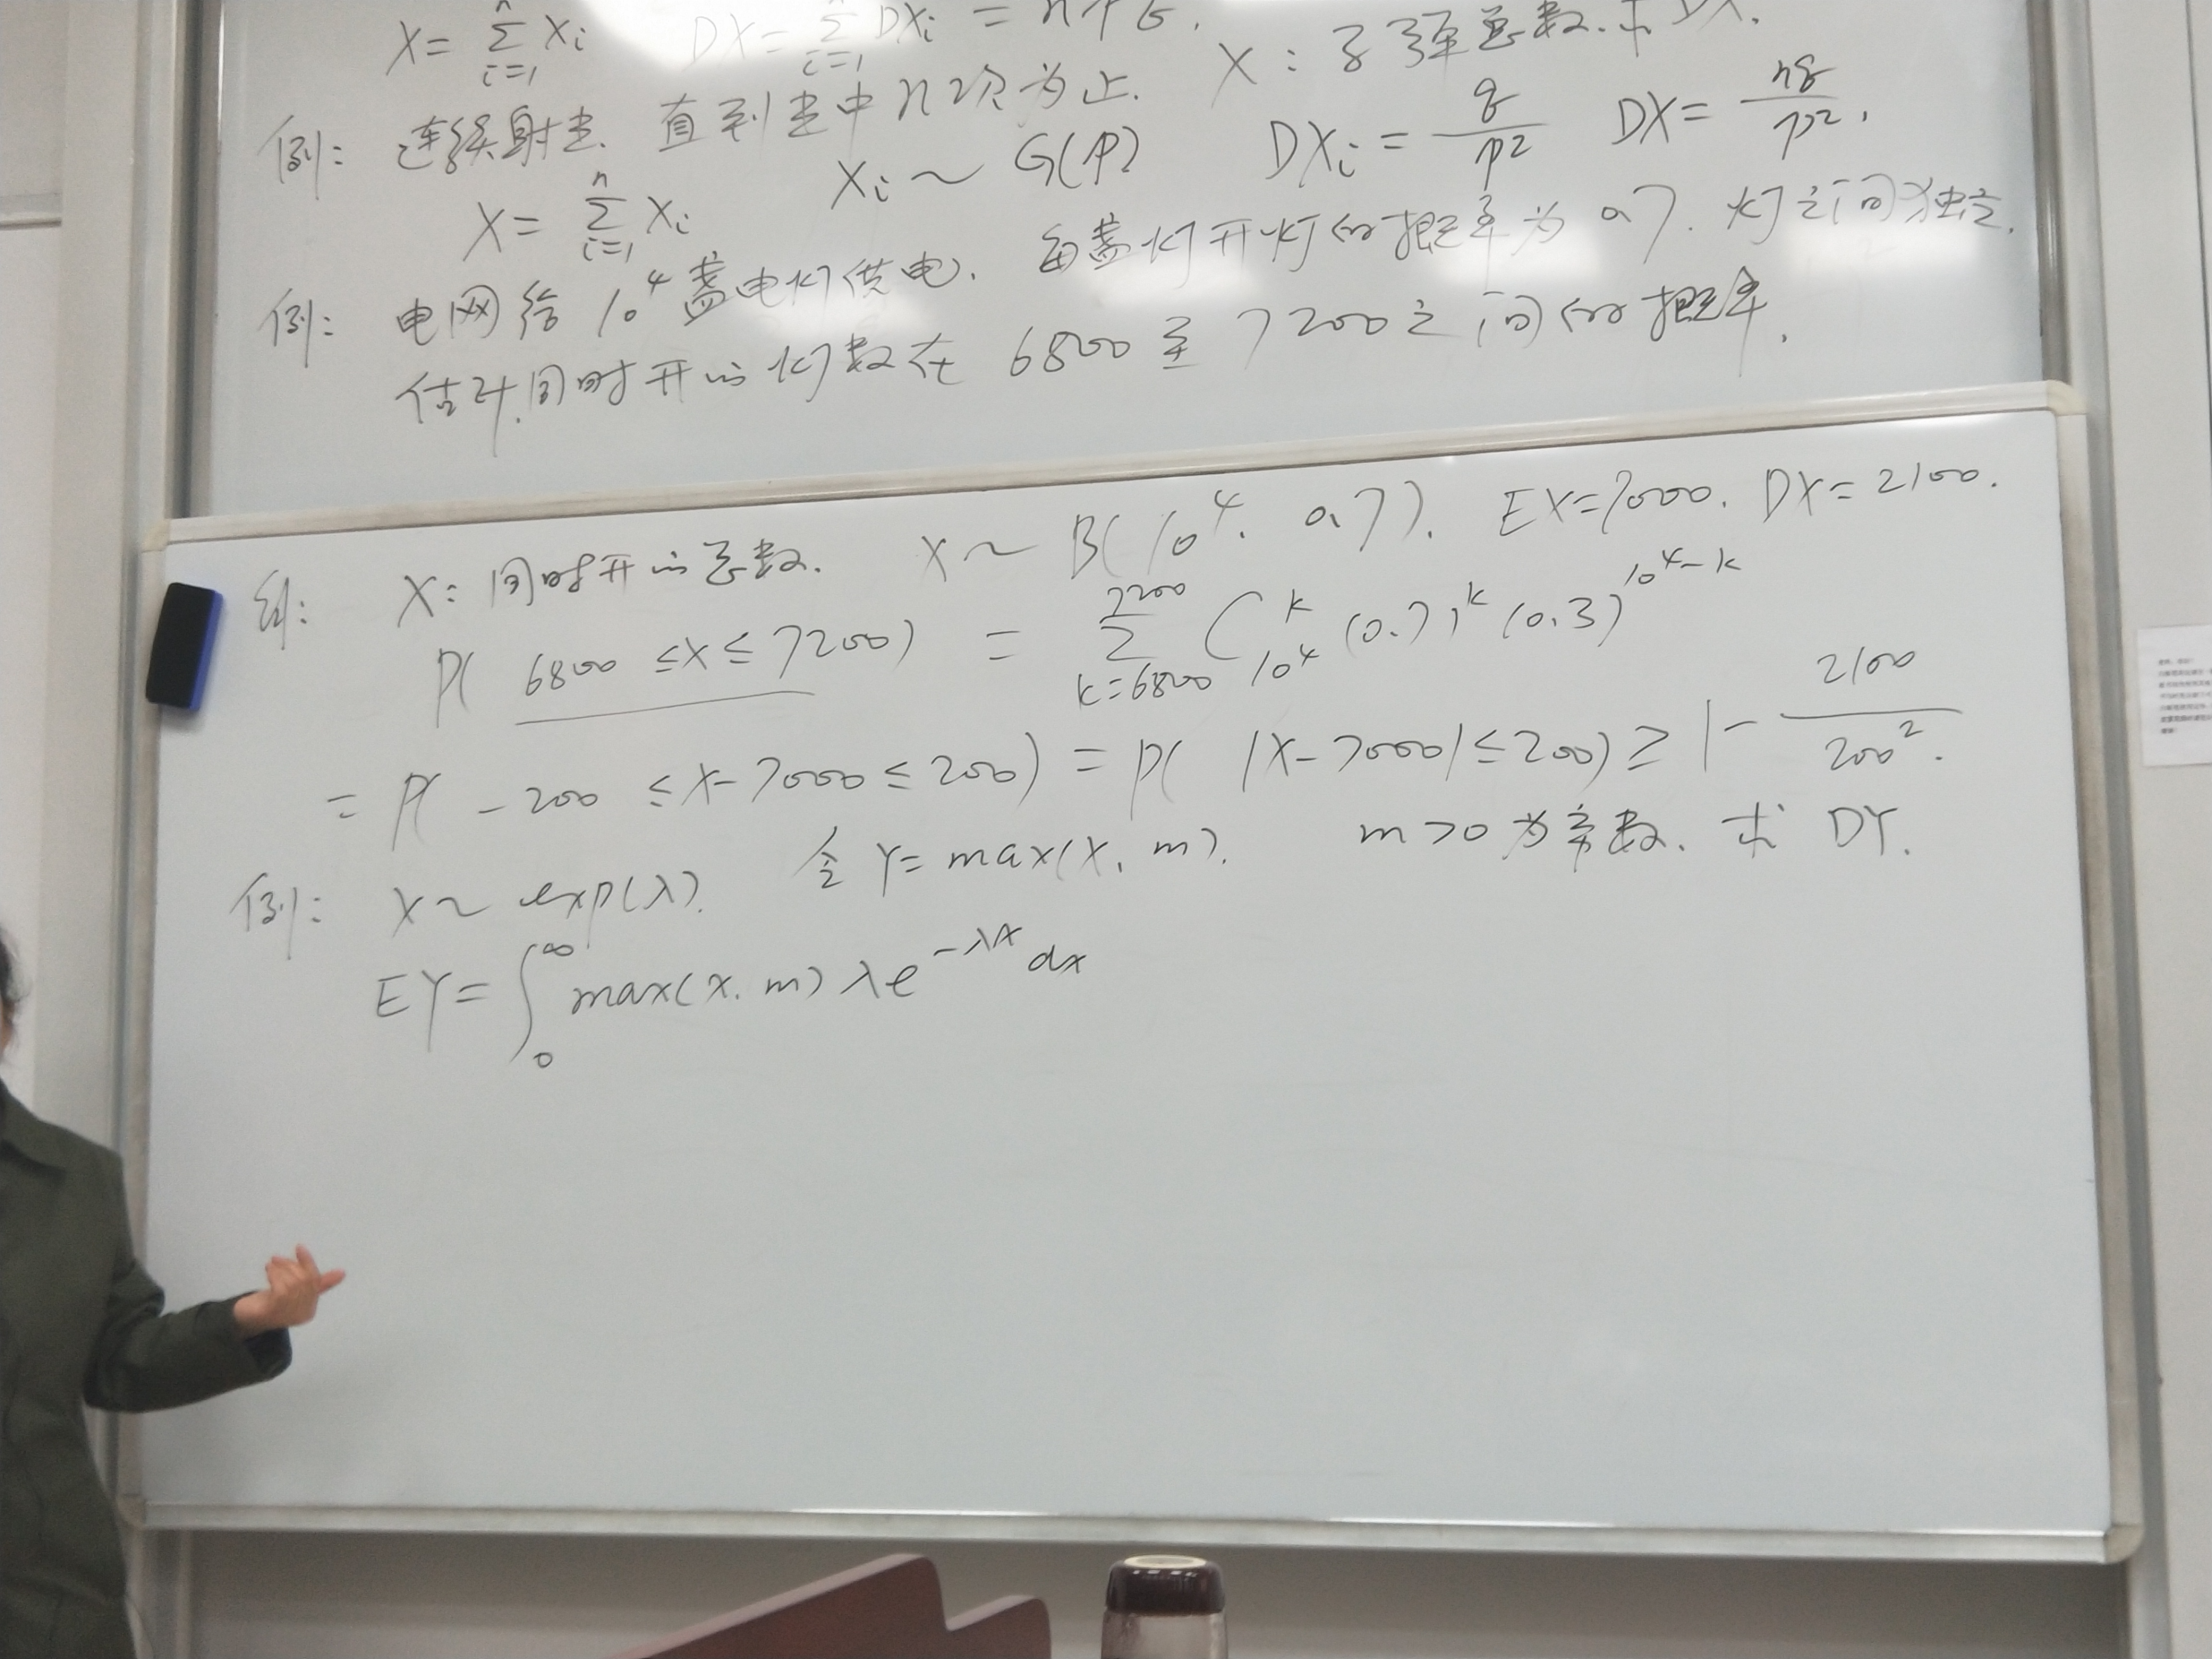 X = \sum_{i=1}^{n} X_i  DX = \sum_{i=1}^{n} DX_i = npq.
例: 连续射击. 直到击中 n 次为止. X: 子弹总数. 求 DX.
X = \sum_{i=1}^{n} X_i  X_i ~ G(p)  DX_i = \frac{q}{p^2}  DX = \frac{nq}{p^2}.
例: 电网给 10^4 盏电灯供电. 每盏灯开灯的概率为 0.7. 灯之间独立.
估计同时开的灯数在 6800 至 7200 之间的概率.
解: X: 同时开的总数. X ~ B(10^4, 0.7). EX=7000. DX=2100.
P( 6800 ≤ X ≤ 7200) = \sum_{k=6800}^{7200} C_{10^4}^{k} (0.7)^k (0.3)^{10^4-k}
= P( -200 ≤ X-7000 ≤ 200) = P( |X-7000| ≤ 200) ≥ 1 - \frac{2100}{200^2}.
例: X ~ exp(λ). 令 Y = max(X, m). m>0 为常数. 求 DY.
EY = \int_0^∞ max(x, m) λe^{-λx} dx